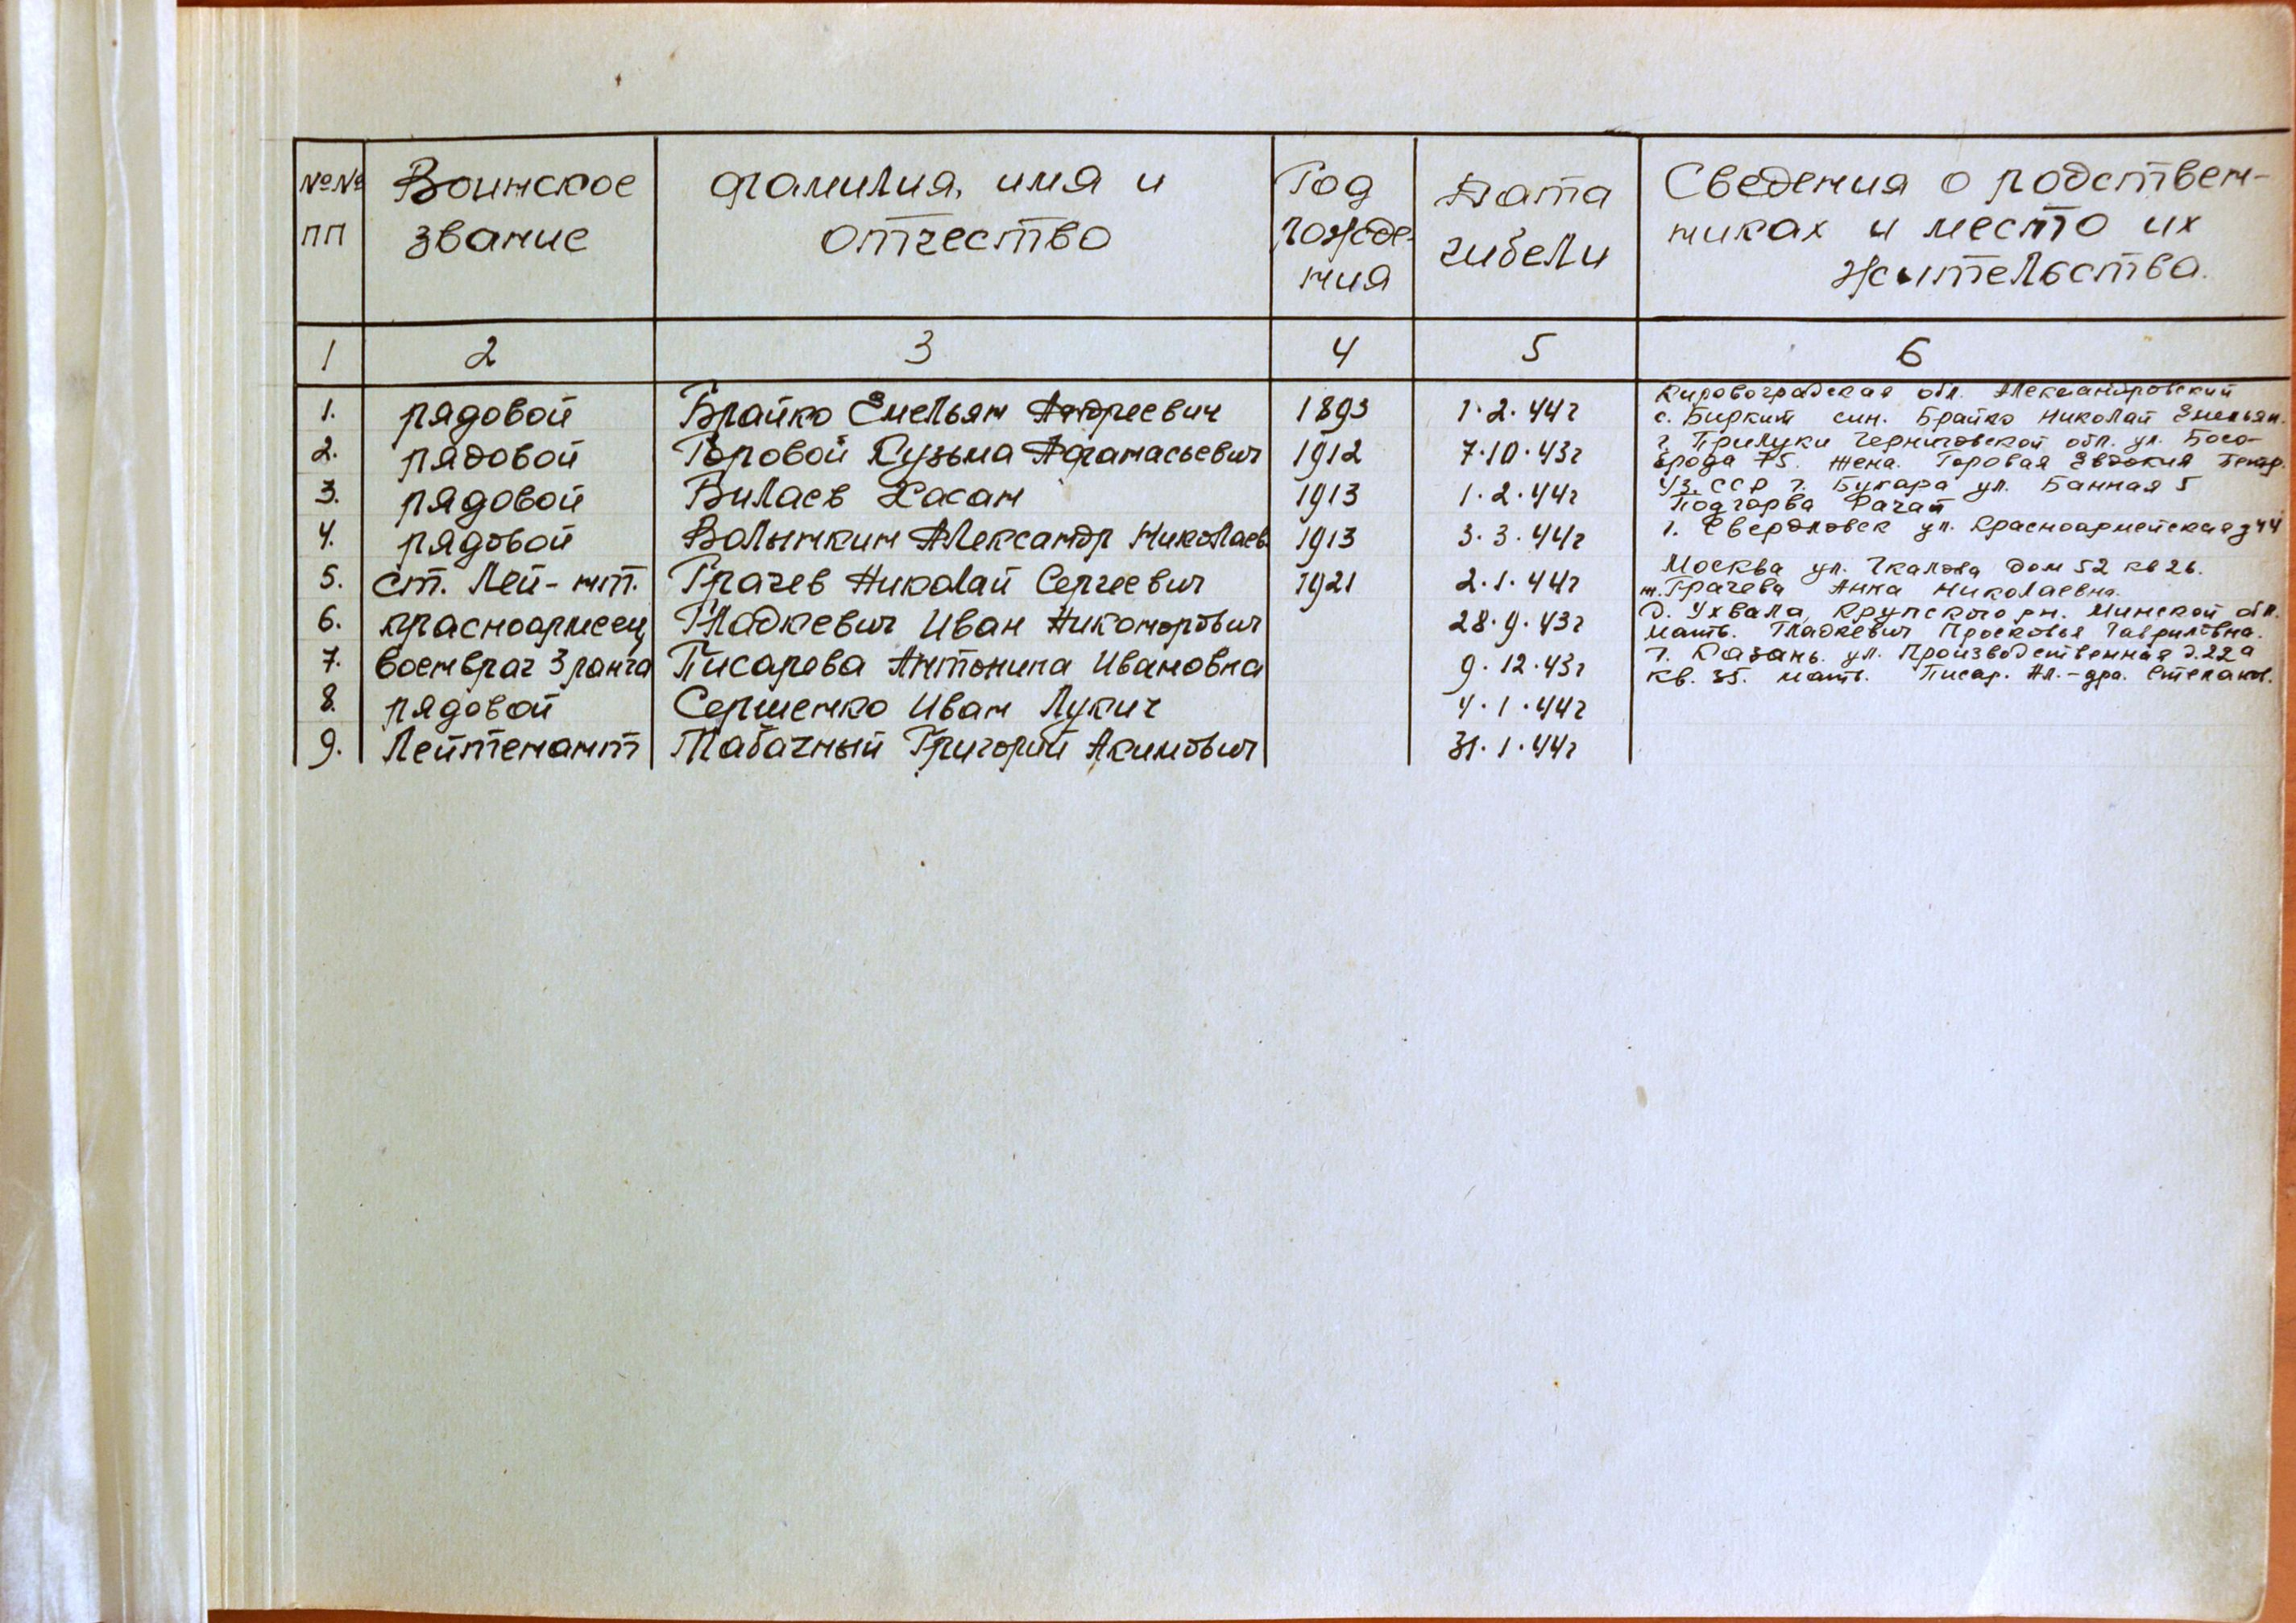 №№ Воинское фамилия, имя и Год Дата Сведения о родствен-
пп звание отчество рожде- гибели никах и место их
ния жительства.
1 2 3 4 5 6
1. рядовой Брайко Емельян Андреевич 1893 1.2.44г Кировоградская обл. Александровский
с. Биркит син. Брайко Николай Емельян.
2. рядовой Горовой Кузьма Афанасьевич 1912 7.10.43г г. Прилуки Черниговской обл. ул. Босо-
брода 75. жена. Горовая Евдокия Петр.
3. рядовой Вилаев Хасан 1913 1.2.44г Уз. ССР г. Бухара ул. Банная 5
Подгорва Рачат
4. рядовой Волынкин Александр Николаев. 1913 3.3.44г г. Свердловск ул. Красноармейская д 44
5. ст. Лей-нт. Грачев Николай Сергеевич 1921 2.1.44г Москва ул. Чкалова дом 52 кв 26.
т. Грачева Анна Николаевна.
6. красноармеец Гладкевич Иван Никонорович 28.9.43г д. Ухвала, Крупского рн. Минской обл.
мать. Гладкевич Просковья Гавриловна.
7. военврач 3 ранга Писарева Антонина Ивановна 9.12.43г г. Казань. ул. Производственная д.22а
кв. 35. мать. Писар. Ал.-дра. Степанов.
8. рядовой Сершенко Иван Лукич 4.1.44г
9. Лейтенант Табачный Григорий Акимович 31.1.44г